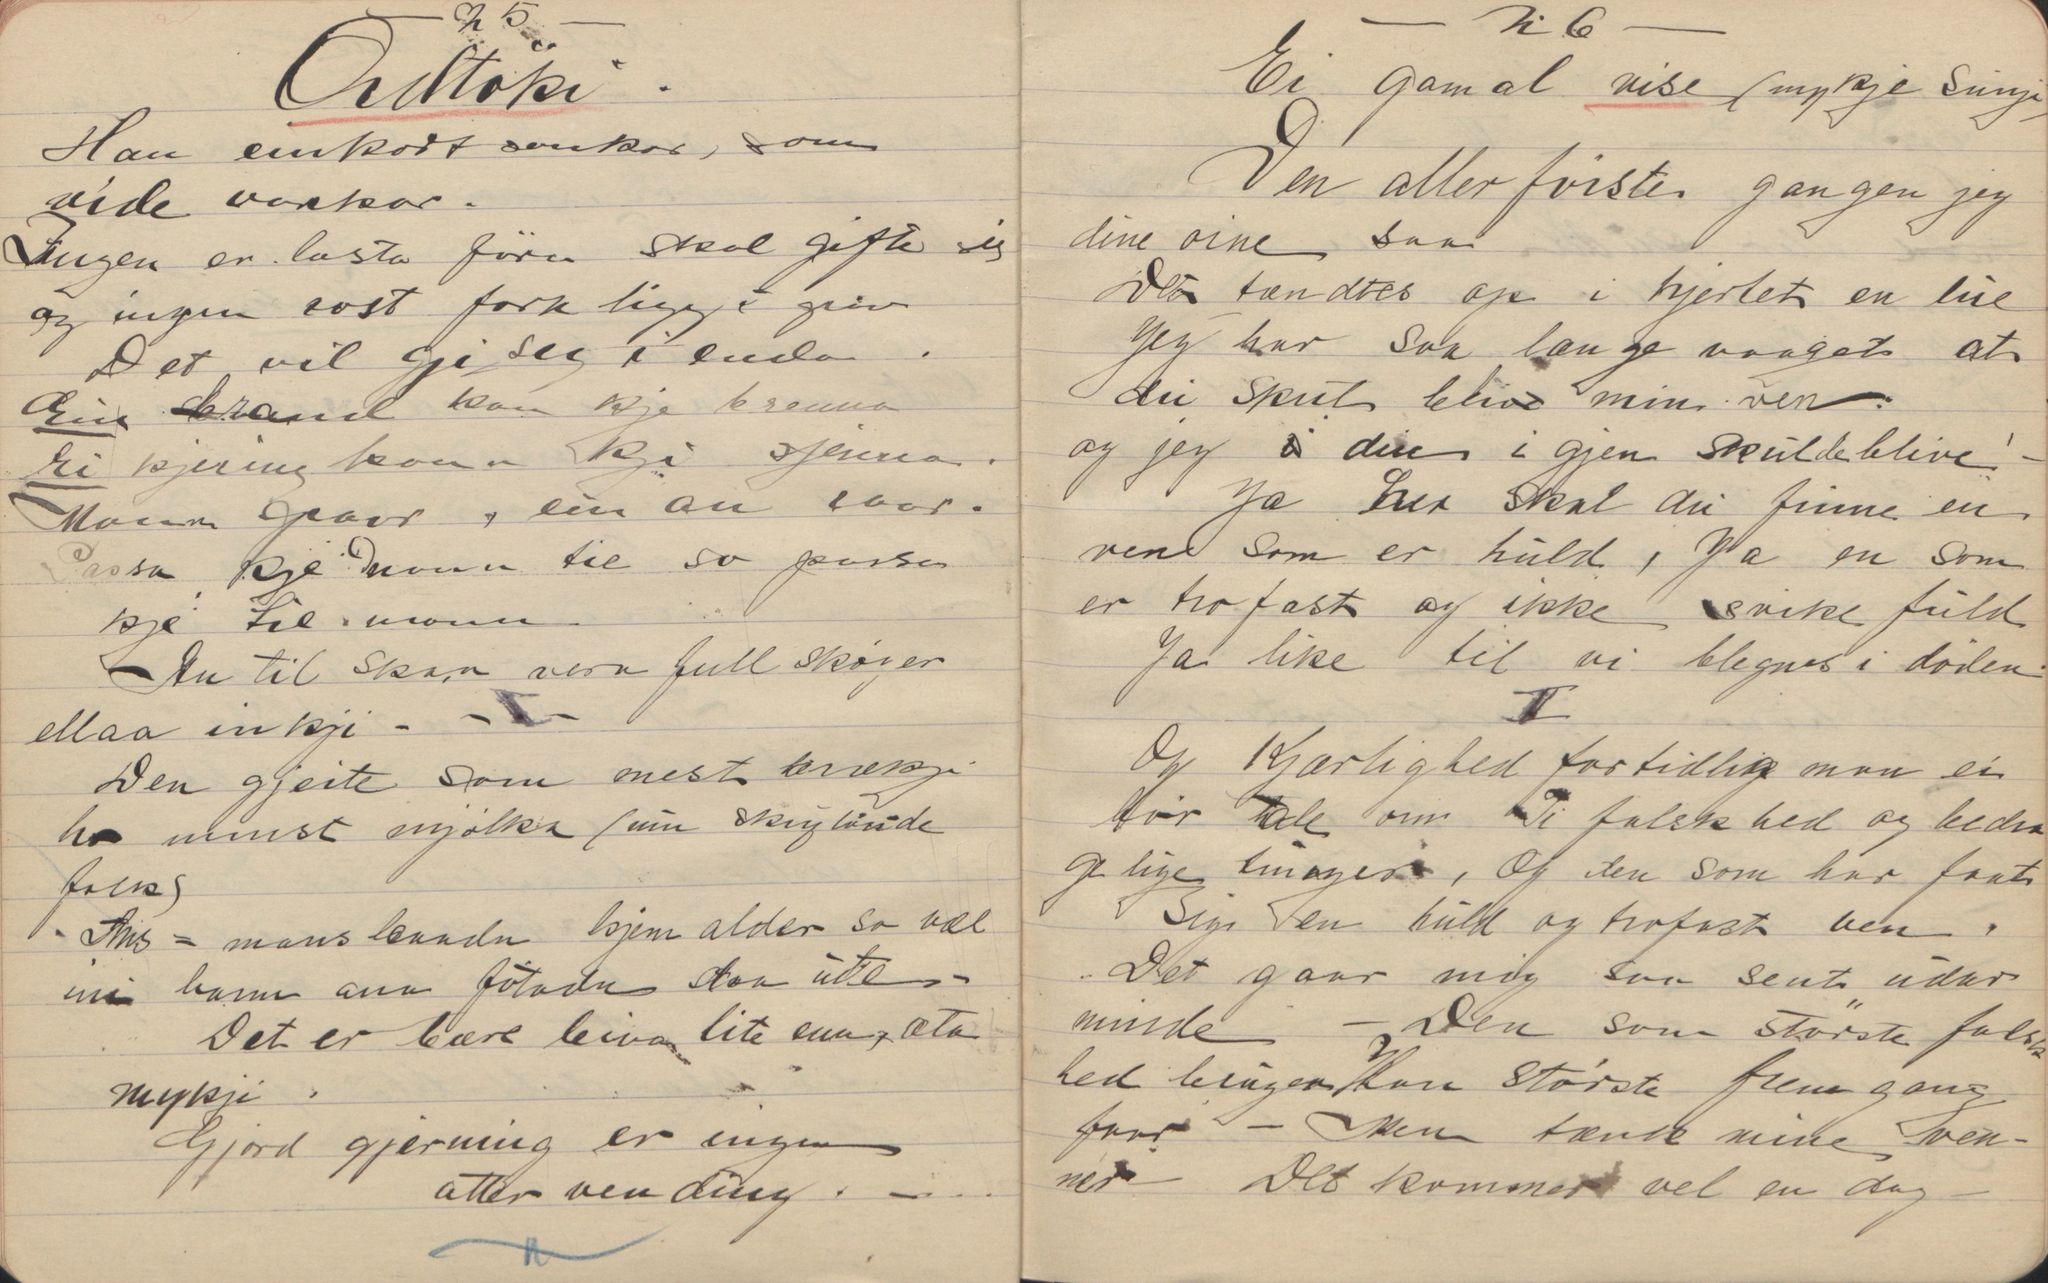 — n 5 —
Ordtöki.
Han einkort sankar, som
vide vankar.
Ingen er lasta förn skal gifte seg
og ingen rost fork ligg i grav
Det vil gji seg i enda.
Ein brand kan kje brenna
Ei kjering kann kji sjenna.
Mann spaar, ein an raar.
Passa kje mann til so passa
kje til mann.
An til skaa vera full skøyer
ellaa inkji - - I -
Den gjeite som mest brækji
ho minst mjølka (um skrytande
folk)
Ans = mans bandn kjem alder so væl
ini barm ana fötadn staa ute -
Det er bære beiva lite enn æta
mykji.
Gjord gjerning er ingen
atter vending. -
— n 6 —
Ei gamal vise (mykje sunji)
Den aller förster gangen jeg
dine øine saa
Det tændtes op i hjertet en lue
Jeg har saa længe vaaget at
du skul blive min ven.
og jeg din i gjen skulde blive! -
Ja her skal du finne en
ven som er huld, Ja en som
er trofast og ikke svikefuld
Ja like til vi blegnes i döden.
II
Og Kjærlighed fortidlig man ei
tör tale om Ti falskhed og bedra
gelige tunger, Og den som har faat
sig en huld og trofast ven.
Det gaar mig saa sent udar
minde — Den som störste falsk
hed bruger Han störste frem gang
faar — Men tænk mine ven-
ner — Det kommer vel en dag —